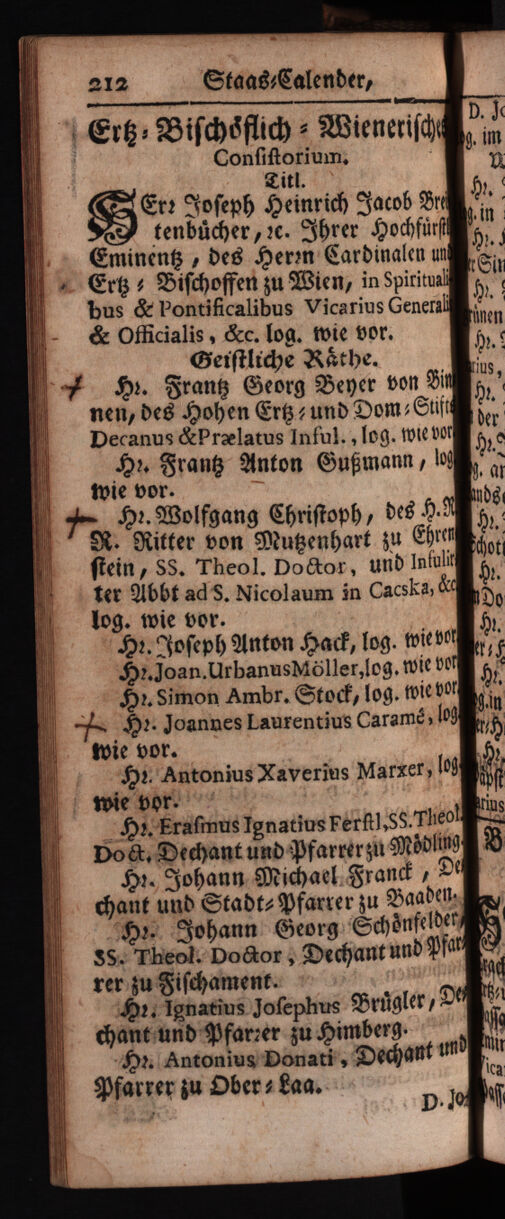 212 Staas-Calender,
Ertz-Bischöflich-Wienerisches
Consistorium.
Titl.
HErr Joseph Heinrich Jacob Brei
tenbücher, ꝛc. Ihrer Hochfürstl
Eminentz, des Herrn Cardinalen und
Ertz-Bischoffen zu Wien, in Spirituali
bus & Pontificalibus Vicarius Generalis
& Officialis, &c. log. wie vor.
Geistliche Räthe.
Hr. Frantz Georg Beyer von Bin
nen, des Hohen Ertz- und Dom-Stiffts
Decanus & Prælatus Inful., log. wie vor
Hr. Frantz Anton Gußmann, log
wie vor.
Hr. Wolfgang Christoph, des H. R.
R. Ritter von Mutzenhart zu Ehren
stein, SS. Theol. Doctor, und Infulir
ter Abbt ad S. Nicolaum in Cacska, &c
log. wie vor.
Hr. Joseph Anton Hack, log. wie vor
Hr. Joan. Urbanus Möller, log. wie vor
Hr. Simon Ambr. Stock, log. wie vor
Hr. Joannes Laurentius Caramé, log.
wie vor.
Hr. Antonius Xaverius Marxer, log.
wie vor.
Hr. Erasmus Ignatius Ferstl, SS. Theol.
Doct. Dechant und Pfarrer zu Mödling.
Hr. Johann Michael Franck, De
chant und Stadt-Pfarrer zu Baaden.
Hr. Johann Georg Schönfelder,
SS. Theol. Doctor, Dechant und Pfar
rer zu Fischament.
Hr. Ignatius Josephus Brügler, De
chant und Pfarrer zu Himberg.
Hr. Antonius Donati, Dechant und
Pfarrer zu Ober-Laa.
D. Jo-